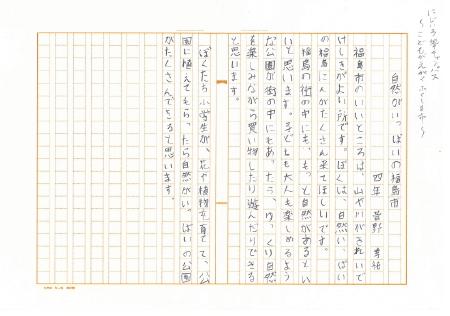 自然がいっぱいの福島市
四年 菅野
福島市のいいところは、山や川がきれいで
けしきがよい所です。ぼくは、自然いっぱい
の福島に人がたくさん来てほしいです。
福島の街の中にも、もっと自然があるとい
いと思います。子どもも大人も楽しめるよう
な公園が街の中にもあったら、ゆっくり自然
を楽しみながら買い物したり遊んだりできる
と思います。
ぼくたち小学生が、花や植物を育てて、公
園に植えてもらったら自然がいっぱいの公園
がたくさんできると思います。